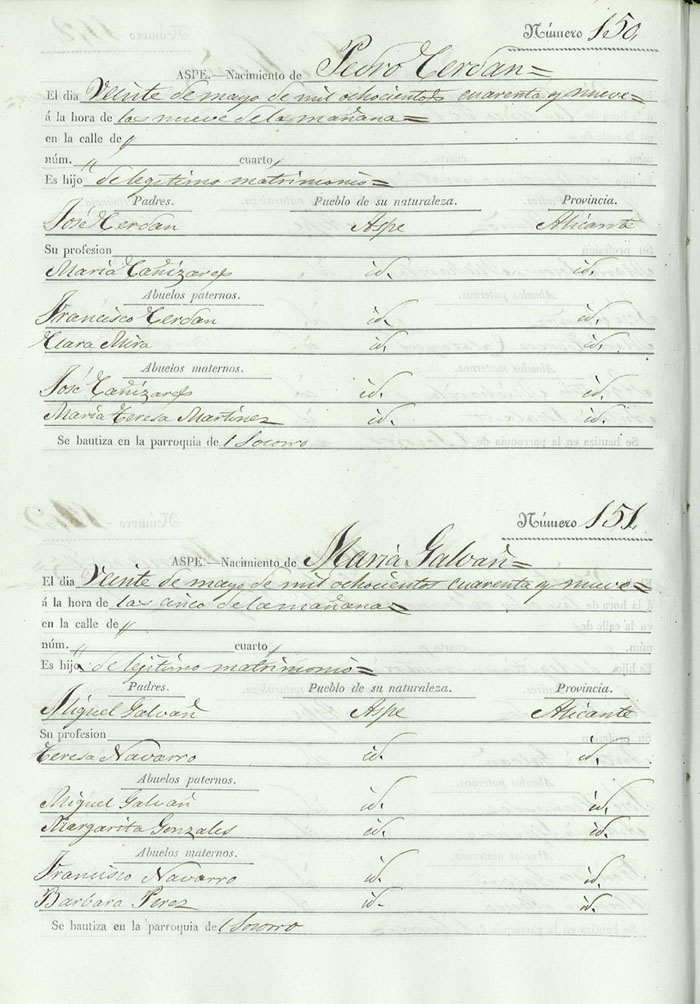 Número 150.
ASPE.—Nacimiento de Pedro Cerdan=
El dia Veinte de mayo de mil ochocientos cuarenta y nueve=
á la hora de las nueve de la mañana=
en la calle de "
núm. " cuarto "
Es hijo de legítimo matrimonio=
Padres. Pueblo de su naturaleza. Provincia.
José Cerdan Aspe Alicante
Su profesion
Maria Cañizares id. id.
Abuelos paternos.
Francisco Cerdan id. id.
Clara Mira id. id.
Abuelos maternos.
José Cañizares id. id.
Maria Teresa Martinez id. id.
Se bautiza en la parroquia del Socorro
Número 151.
ASPE.—Nacimiento de Maria Galvañ=
El dia Veinte de mayo de mil ochocientos cuarenta y nueve=
á la hora de las cinco de la mañana=
en la calle de "
núm. " cuarto "
Es hija de legítimo matrimonio=
Padres. Pueblo de su naturaleza. Provincia.
Miguel Galvañ Aspe Alicante
Su profesion
Teresa Navarro id. id.
Abuelos paternos.
Miguel Galvañ id. id.
Margarita Gonzales id. id.
Abuelos maternos.
Francisco Navarro id. id.
Barbara Perez id. id.
Se bautiza en la parroquia del Socorro